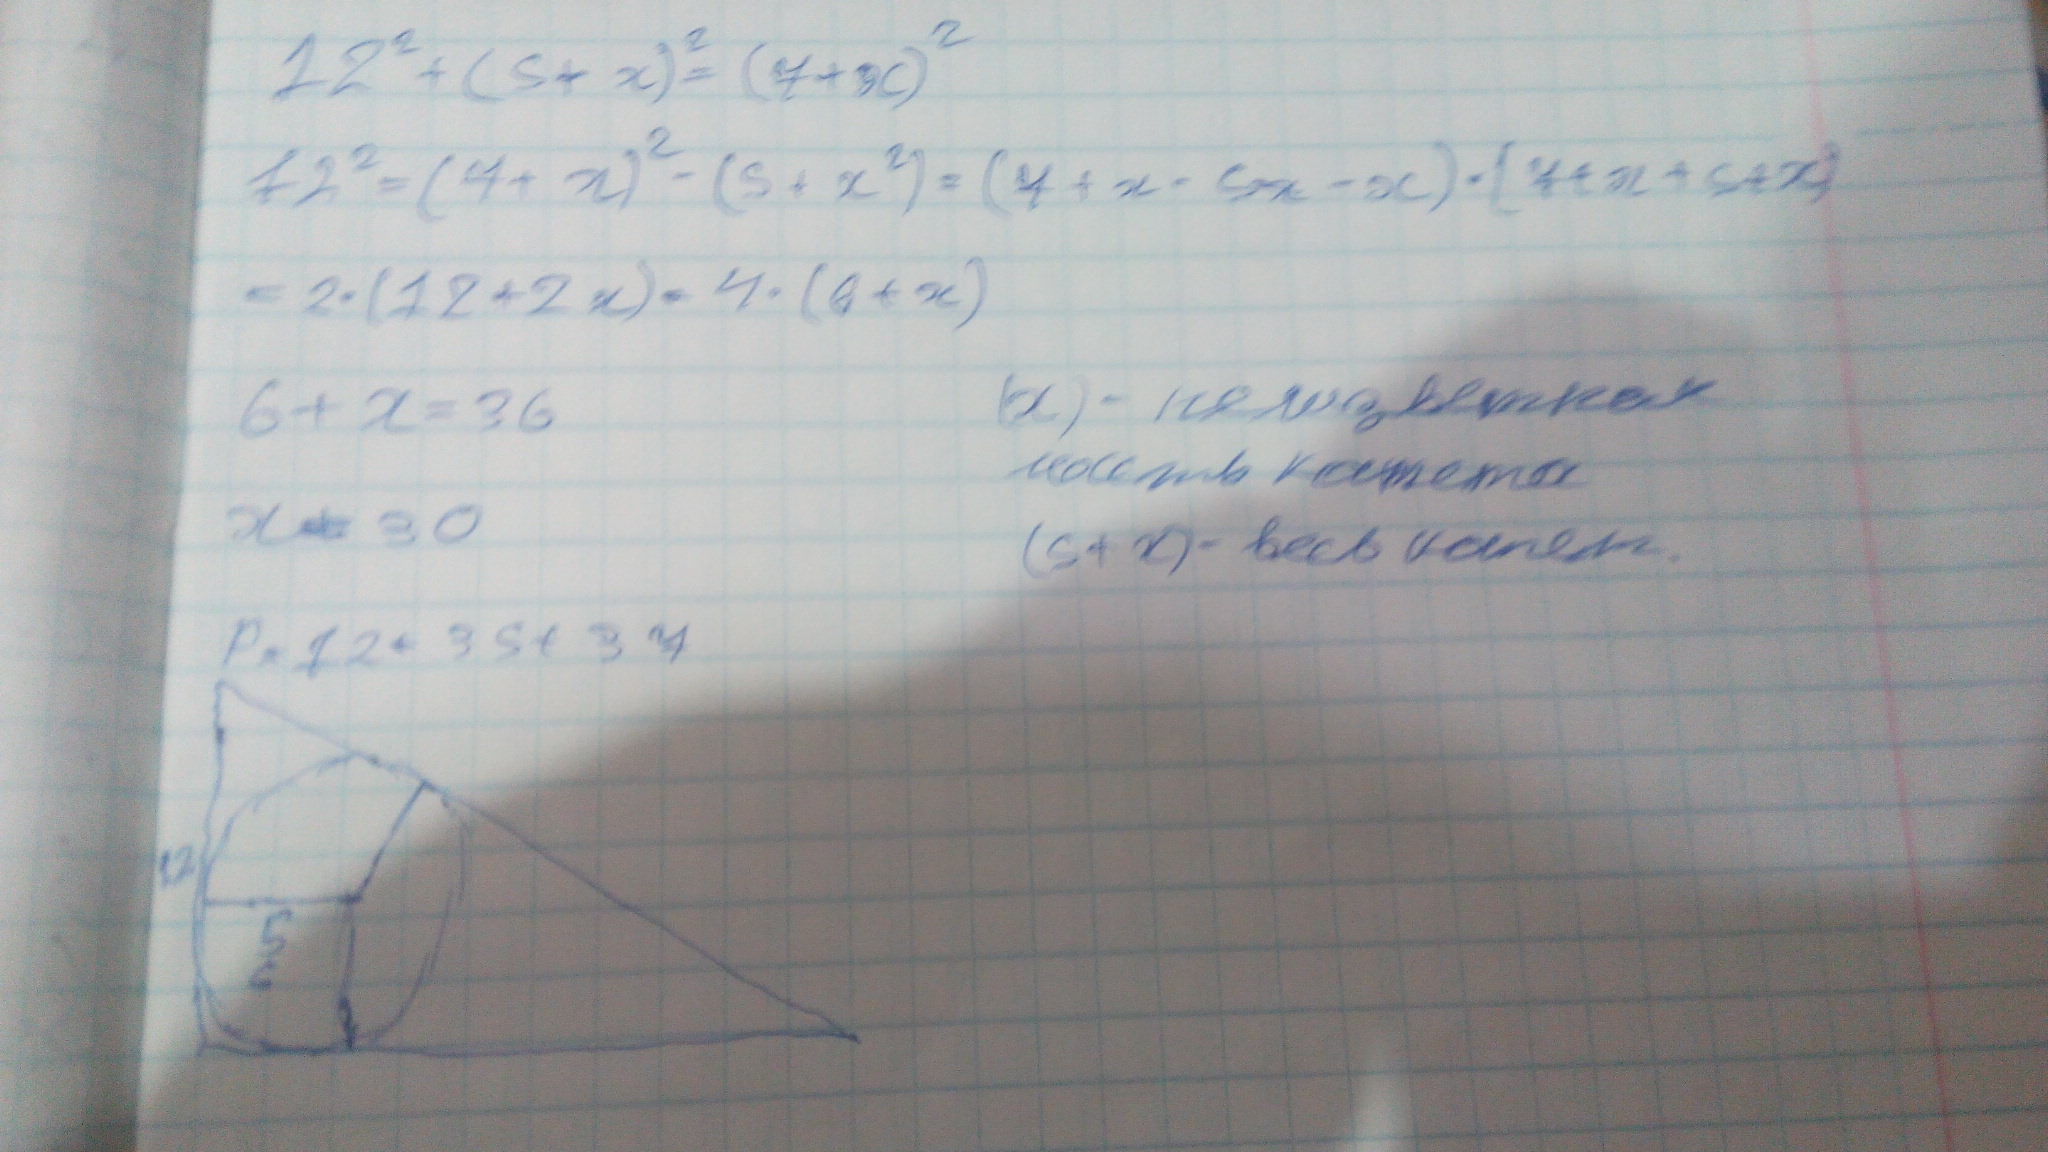 12² + (5 + x)² = (7 + x)²
12² = (7 + x)² - (5 + x²) = (7 + x - 5 - x - x) · (7 + x + 5 + x)
= 2 · (12 + 2x) = 4 · (6 + x)
6 + x = 36
(x) - неизвестная
часть катета
x = 30
(5 + x) - весь катет.
P = 12 + 35 + 37
12
5